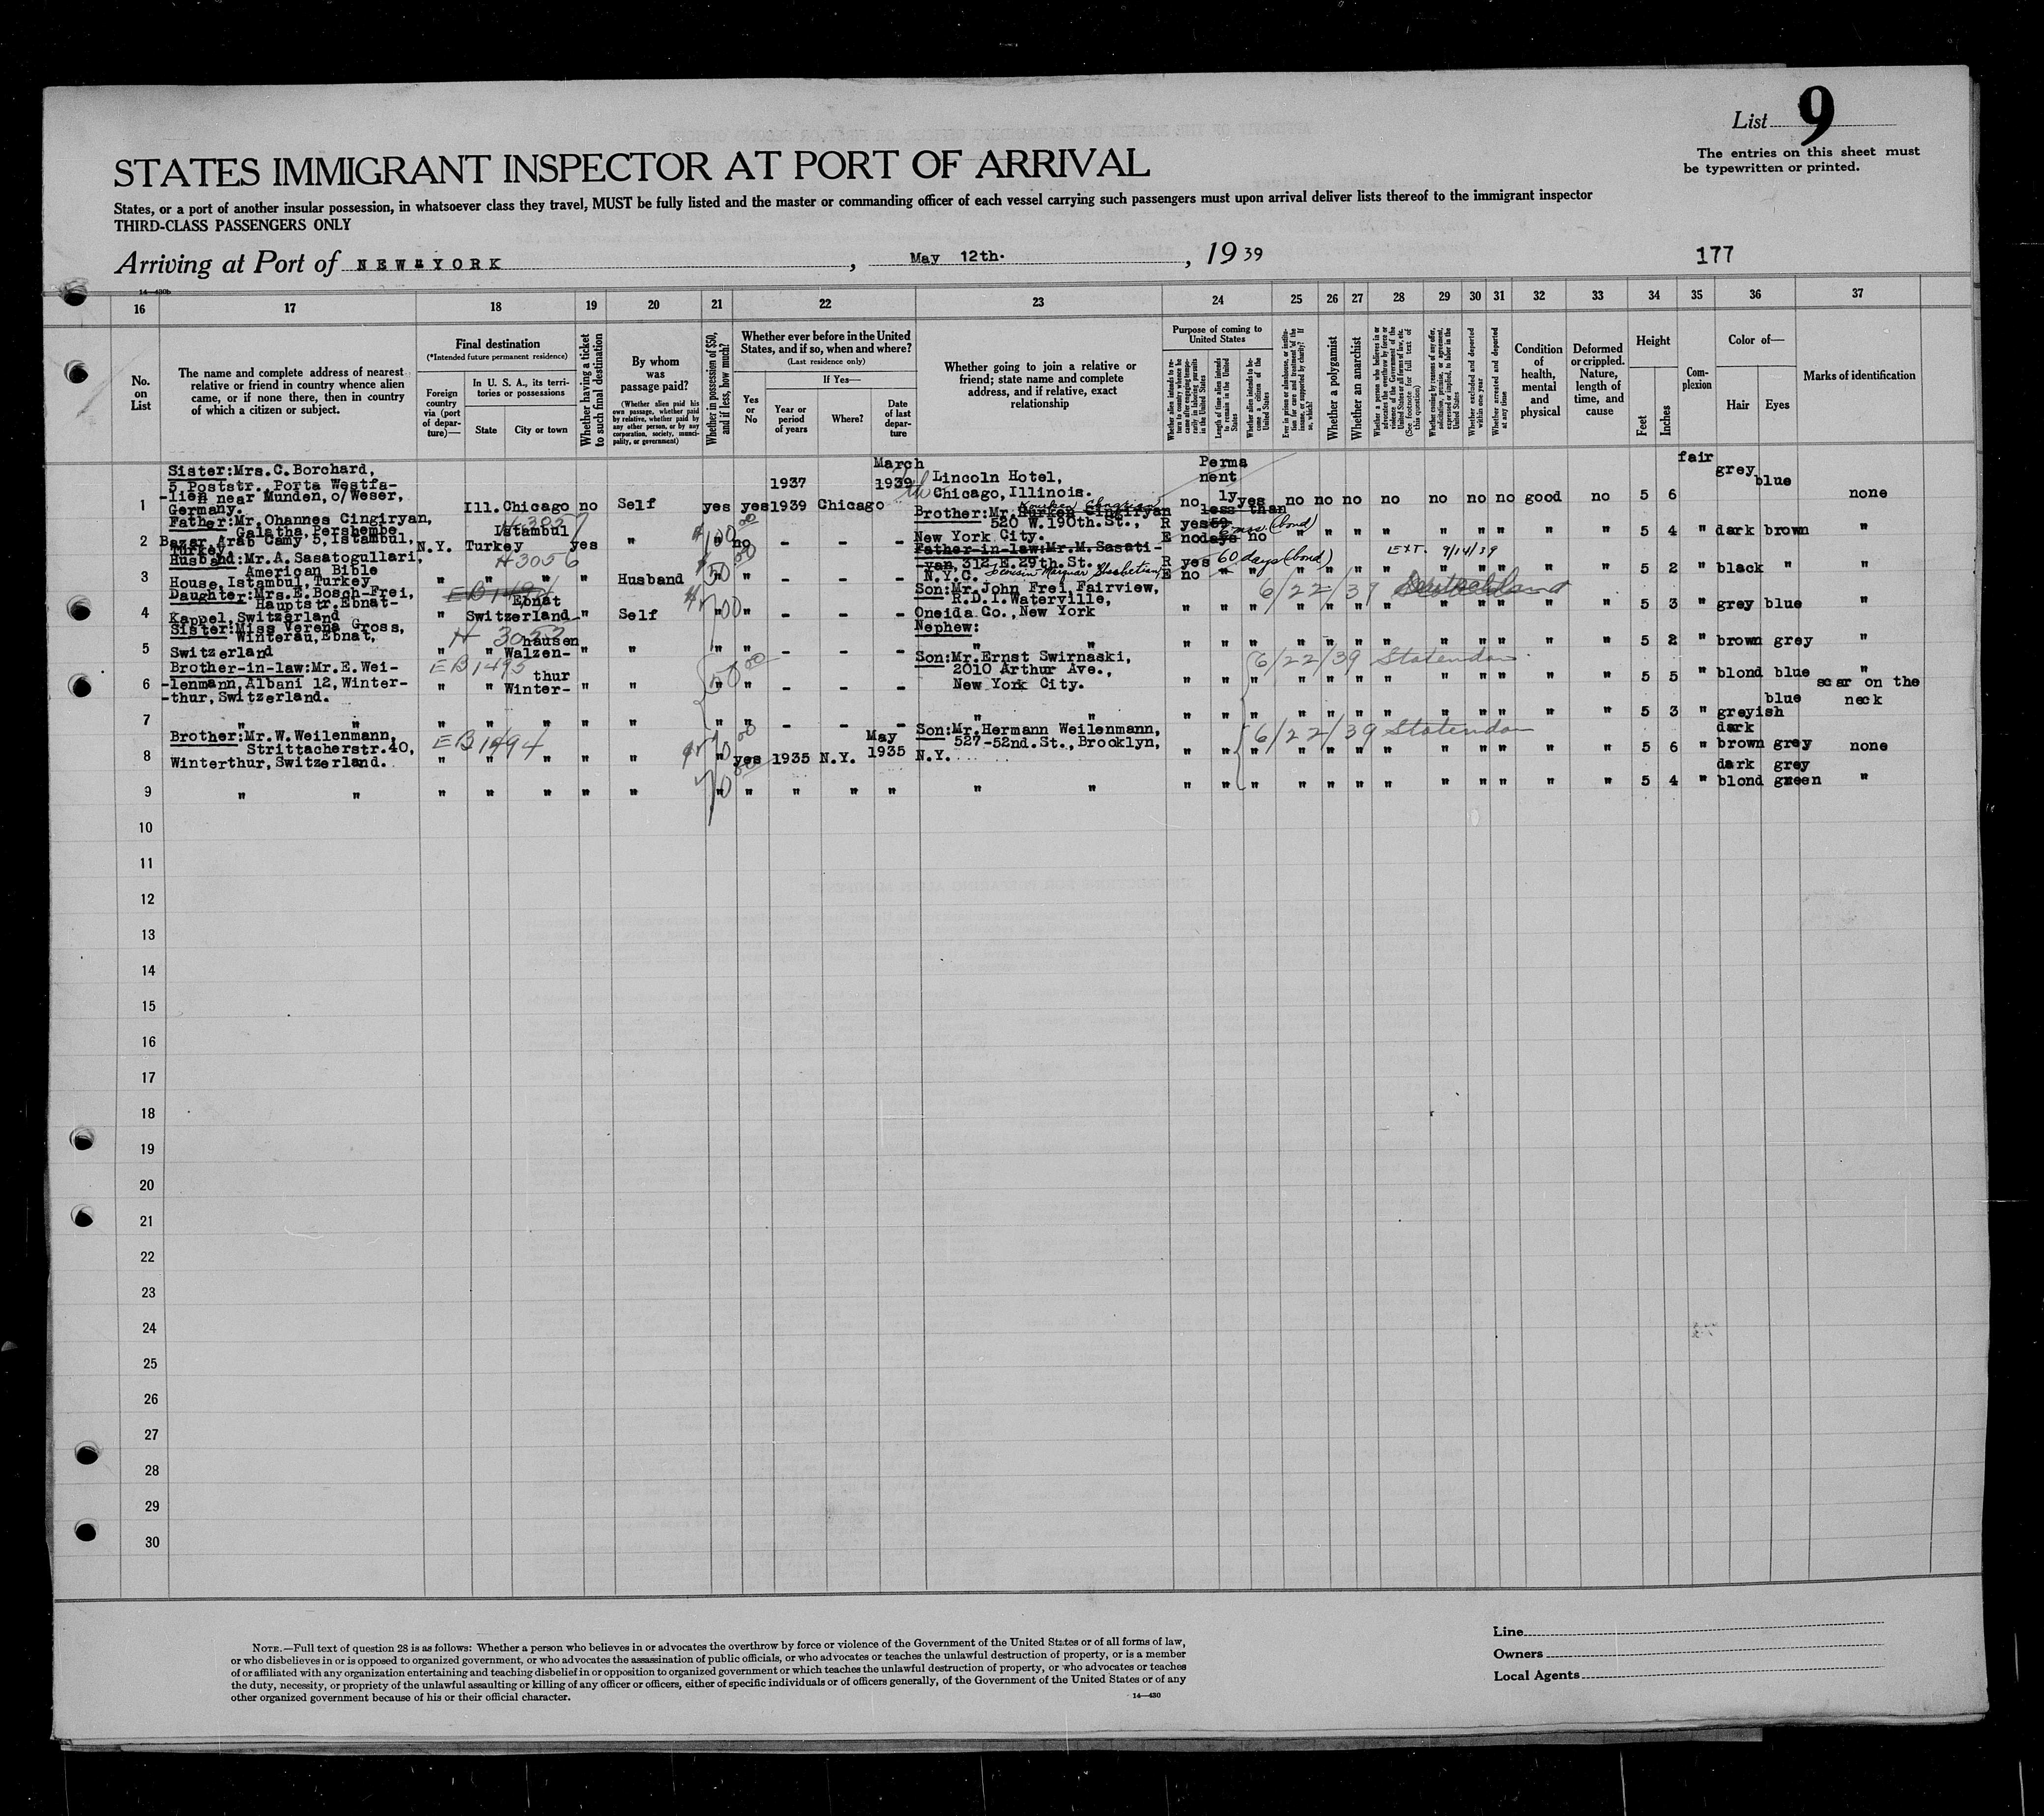 List 9
The entries on this sheet must
be typewritten or printed.
STATES IMMIGRANT INSPECTOR AT PORT OF ARRIVAL
States, or a port of another insular possession, in whatsoever class they travel, MUST be fully listed and the master or commanding officer of each vessel carrying such passengers must upon arrival deliver lists thereof to the immigrant inspector
THIRD-CLASS PASSENGERS ONLY
Arriving at Port of NEW YORK, May 12th. , 19 39
177
16 17 18 19 20 21 22 23 24 25 26 27 28 29 30 31 32 33 34 35 36 37
No. on List
The name and complete address of nearest
relative or friend in country whence alien
came, or if none there, then in country
of which a citizen or subject.
Final destination
(*Intended future permanent residence)
Foreign country via (port of departure)—
In U. S. A., its territories or possessions
State
City or town
Whether having a ticket to such final destination
By whom was passage paid?
(Whether alien paid his own passage, whether paid by relative, whether paid by any other person, or by any corporation, society, municipality, or government)
Whether in possession of $50, and if less, how much?
Whether ever before in the United States, and if so, when and where?
(Last residence only)
Yes or No
If Yes—
Year or period of years
Where?
Date of last departure
Whether going to join a relative or
friend; state name and complete
address, and if relative, exact
relationship
Purpose of coming to United States
Whether alien intends to return to country whence he came after engaging temporarily in laboring pursuits in the United States
Length of time alien intends to remain in the United States
Whether alien intends to become a citizen of the United States
Ever in prison or almshouse, or institution for care and treatment of the insane, or supported by charity? If so, which?
Whether a polygamist
Whether an anarchist
Whether a person who believes in or advocates the overthrow by force or violence of the Government of the United States or all forms of law, etc. (See footnote for full text of this question)
Whether coming by reasons of any offer, solicitation, promise, or agreement, expressed or implied, to labor in the United States
Whether excluded and deported within one year
Whether arrested and deported at any time
Condition of health, mental and physical
Deformed or crippled. Nature, length of time, and cause
Height
Feet
Inches
Complexion
Color of—
Hair
Eyes
Marks of identification
Sister:Mrs.C.Borchard,
5 Poststr. Porta Westfa-
-lien near Munden,o/Weser,
Germany.
1 Ill. Chicago no Self yes yes 1937 1939 Chicago March 1939
Lincoln Hotel,
Chicago, Illinois.
no Permanently yes no no no no no no no good no 5 6 fair grey blue none
Father:Mr.Ohannes Cingiryan,
Galatha, Pershembe
Bazar Arab Camy 5,Istambul,
Turkey
2 N.Y. Turkey Istambul yes " $100.00 " no - - -
Brother:Mr.Nurken Cingiryan
520 W.190th.St.,
New York City.
R yes E no less than 59 days 6 mos. (bond) no " " " " " " " " " 5 4 " dark brown "
Husband:Mr.A.Sasatogullari,
American Bible
House,Istambul,Turkey
3 " " " " H3056 Husband 50.00 " " - - -
Father-in-law:Mr.M.Sasati-
-yan, 312 E.29th.St.
N.Y.C.
R yes E no 60 days (bond) EXT. 9/14/39
" " " " " " " " " 5 2 " black " "
Daughter:Mrs.E.Bosch-Frei,
Hauptstr.Ebnat-
Kappel,Switzerland
4 " Switzerland Ebnat " Self " " - - -
Son:Mr.John Frei,Fairview,
R.D.1.Waterville,
Oneida Co., New York
6/22/39
" " " " " " " " " " " " 5 3 " grey blue "
Sister:Miss Verena Gross,
Winterau,Ebnat,
Switzerland
5 " " Walzen-
hausen
H 3053
" " " " - - -
Nephew:
" "
" " " " " " " " " " " " 5 2 " brown grey "
Brother-in-law:Mr.E.Wei-
-lenmann,Albani 12,Winter-
-thur,Switzerland.
EB1495
6 " " Winter-
thur
" " 50.00 " " - - -
Son:Mr.Ernst Swirnaski,
2010 Arthur Ave.,
New York City.
6/22/39 Statendam
" " " " " " " " " " " " 5 5 " blond blue "
7 " " " " " " " " " - - - " "
" " " " " " " " " " " " 5 3 " greyish blue scar on the
neck
Brother:Mr.W.Weilenmann,
Strittacherstr.40,
Winterthur,Switzerland.
EB1494
8 " " " " " " yes 1935 N.Y. May 1935
Son:Mr.Hermann Weilenmann,
527-52nd.St.,Brooklyn,
N.Y.
6/22/39 Statendam
" " " " " " " " " " " " 5 6 " dark brown grey none
9 " " " " " " " " " " " " " " "
" " " " " " " " " " " " 5 4 " dark blond grey green "
10
11
12
13
14
15
16
17
18
19
20
21
22
23
24
25
26
27
28
29
30
NOTE.—Full text of question 28 is as follows: Whether a person who believes in or advocates the overthrow by force or violence of the Government of the United States or of all forms of law,
or who disbelieves in or is opposed to organized government, or who advocates the assassination of public officials, or who advocates or teaches the unlawful destruction of property, or is a member
of or affiliated with any organization entertaining and teaching disbelief in or opposition to organized government or which teaches the unlawful destruction of property, or who advocates or teaches
the duty, necessity, or propriety of the unlawful assaulting or killing of any officer or officers, either of specific individuals or of officers generally, of the Government of the United States or of any
other organized government because of his or their official character.
14—430
Line
Owners
Local Agents